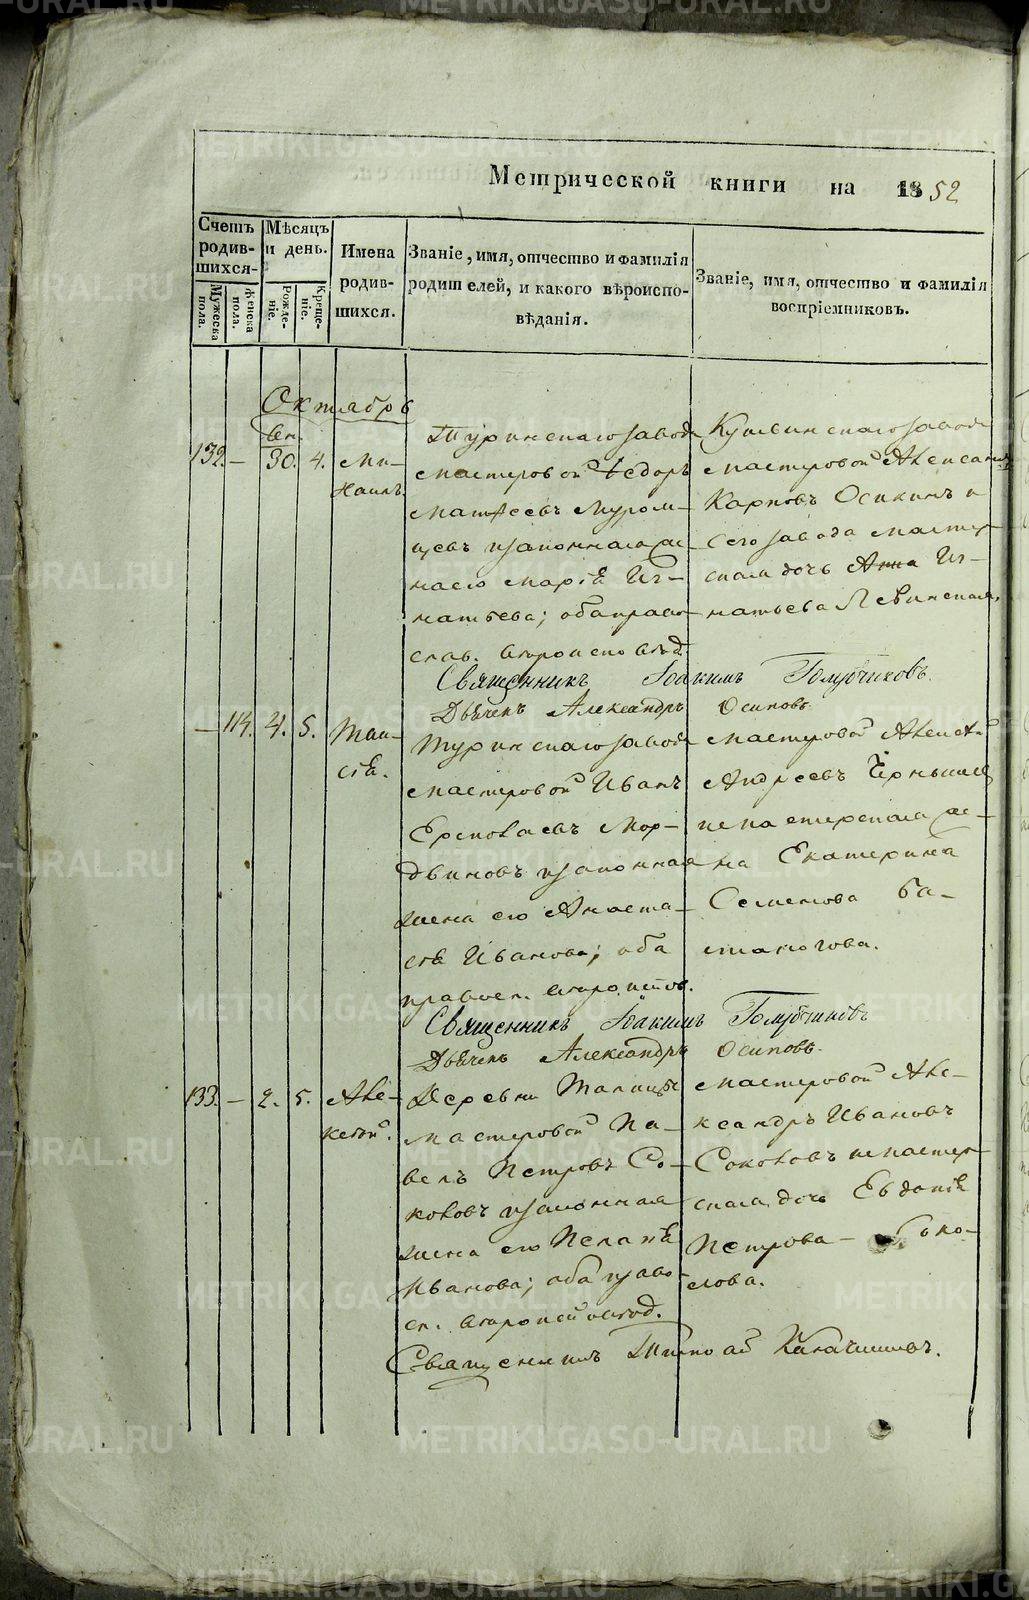 Метрической книги на 1852
Счетъ родив-шихся.
Мужеска пола.
Женска пола.
Мѣсяцъ и день.
Рожде-ніе.
Креще-ніе.
Имена родив-шихся.
Званіе, имя, отчество и фамилія родителей, и какого вѣроиспо-вѣданія.
Званіе, имя, отчество и фамилія воспріемниковъ.
Октябрь
Сен.
132. — 30. 4. Ми-
хаилъ.
Туринскаго завода
мастеровой Ѳедоръ
Матѳеевъ Муром-
цевъ законная же-
на его Марія Иг-
натьева; оба право-
слав. вѣроисповѣд.
Кушвинскаго завода
мастеровой Алексан
Карповъ Осикинъ и
сего завода мастер
ская дочь Анна Иг-
натьева Левинская.
Священникъ Іоакимъ Голубчиковъ.
Дьячекъ Александръ Осиповъ
— 114. 4. 5. Таи-
сія.
Туринскаго завода
мастеровой Иванъ
Ермолаевъ Мор-
двиновъ законная
жена его Анаста-
сія Иванова; оба
правосл. вѣроиспов.
мастеровой Алексѣй
Андреевъ Чернышевъ
и мастерская же-
на Екатерина
Семенова Ба-
сталогова.
Священникъ Іоакимъ Голубчиковъ
Дьячекъ Александръ Осиповъ.
133. — 2. 5. Але-
ксѣй.
Деревни Талицы
мастеровой Па-
велъ Петровъ Со-
коловъ законная
жена его Пелагія
Иванова; оба право-
сл. вѣроисповѣд.
мастеровой Але-
ксандръ Ивановъ
Соколовъ и мастер-
ская дочь Евдокія
Петрова Соко-
лова.
Священникъ Тимоѳей Калачниковъ.
METRIKI.GASO-URAL.RU